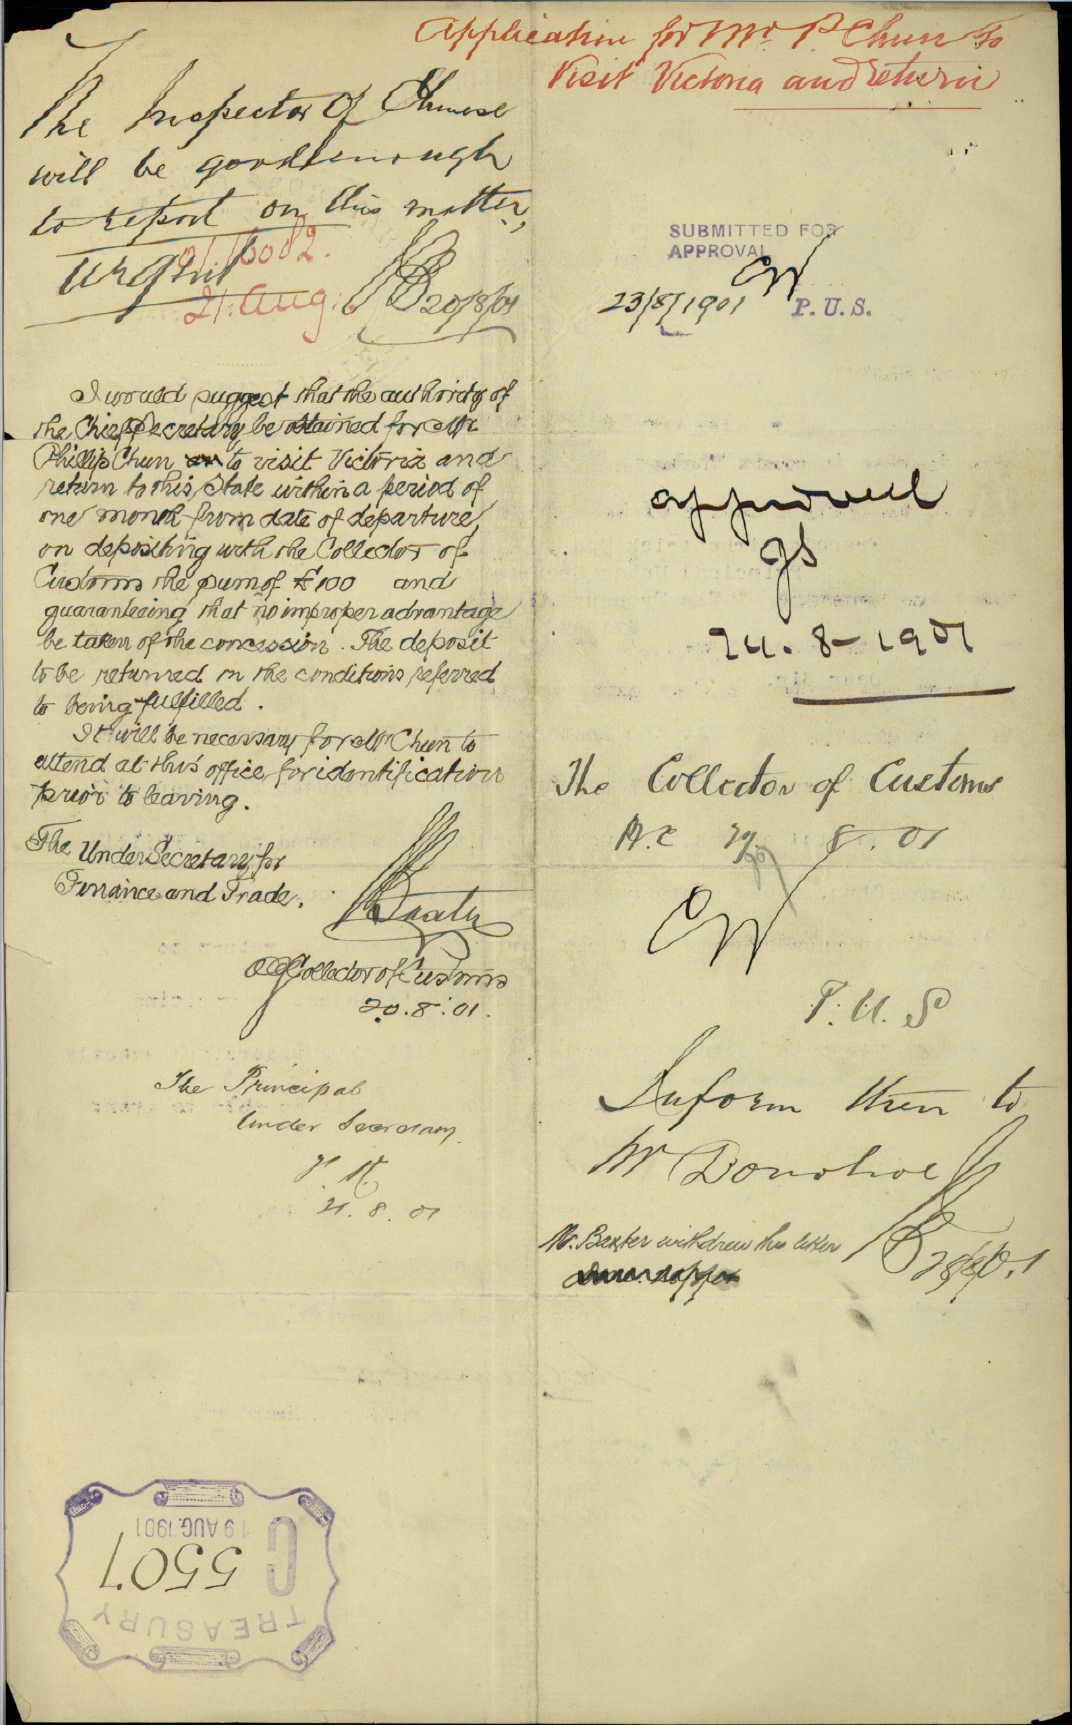 Application for Mr. P. Chun to
Visit Victoria and return
The Inspector of Chinese
will be good enough
to report on this matter,
urgent
01.13082.
21. Aug.
20/8/01
I would suggest that the authority of
the Chief Secretary be obtained for Mr
Phillip Chun to visit Victoria and
return to this State within a period of
one month from date of departure,
on depositing with the Collector of
Customs the sum of £100 and
guaranteeing that no improper advantage
be taken of the concession. The deposit
to be returned on the conditions referred
to being fulfilled.
It will be necessary for Mr Chun to
attend at this office for identification
prior to leaving.
The Under Secretary for
Finance and Trade.
Baxter
Actg Collector of Customs
20.8.01.
The Principal
Under Secretary.
21.8.01
TREASURY
C
5507
19 AUG. 1901
SUBMITTED FOR
APPROVAL
CW
23/8/1901 P. U. S.
approved
JS
24.8-1901
The Collector of Customs
B.C 8.01
CW
P.U.S
Inform then to
Mr Donohoe
28/8/01
Mr. Baxter withdrew this letter